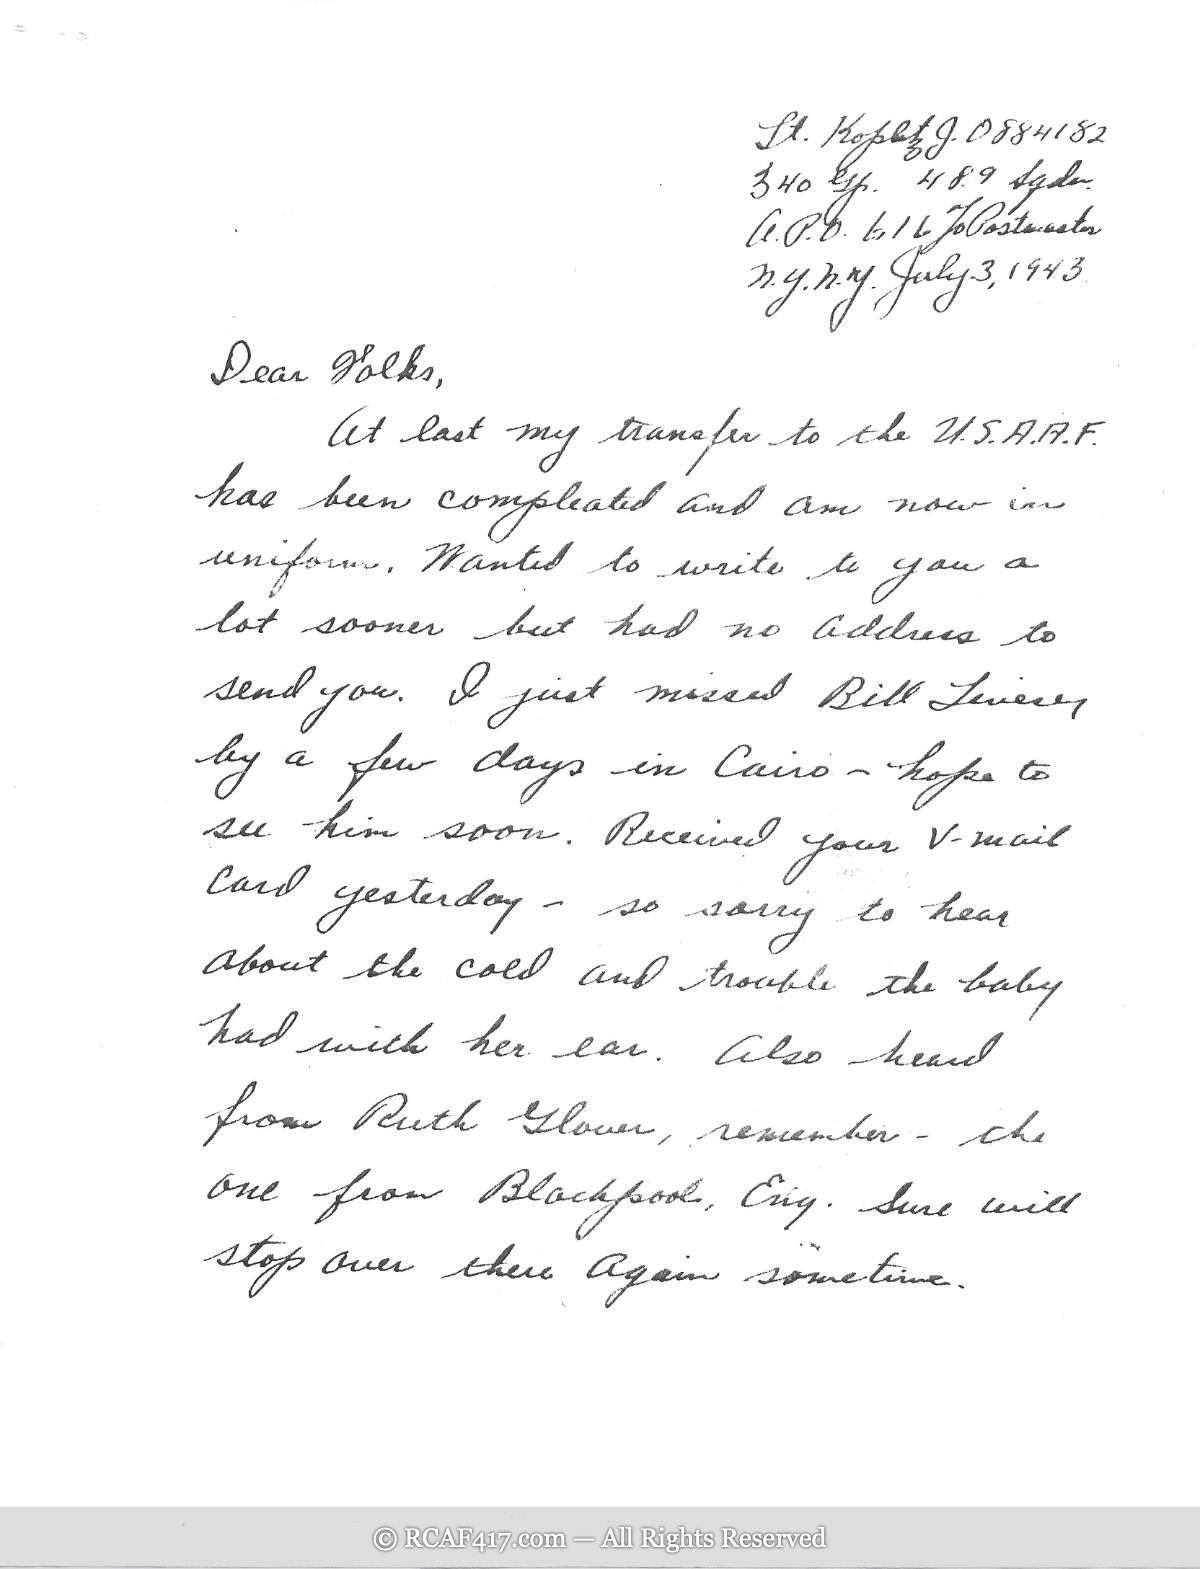 Lt. Kopletz J. O884182
340 Gp. 489 Sqdn.
A.P.O. 616 % Postmaster
N.Y. N.Y. July 3, 1943
Dear Folks,
At last my transfer to the U.S.A.A.F.
has been compleated and am now in
uniform. Wanted to write to you a
lot sooner but had no address to
send you. I just missed Bill
by a few days in Cairo - hope to
see him soon. Received your V-mail
Card yesterday - so sorry to hear
about the cold and trouble the baby
had with her ear. Also heard
from Ruth Glover, remember - the
one from Blackpool, Eng. Sure will
stop over there again sometime.
© RCAF417.com — All Rights Reserved